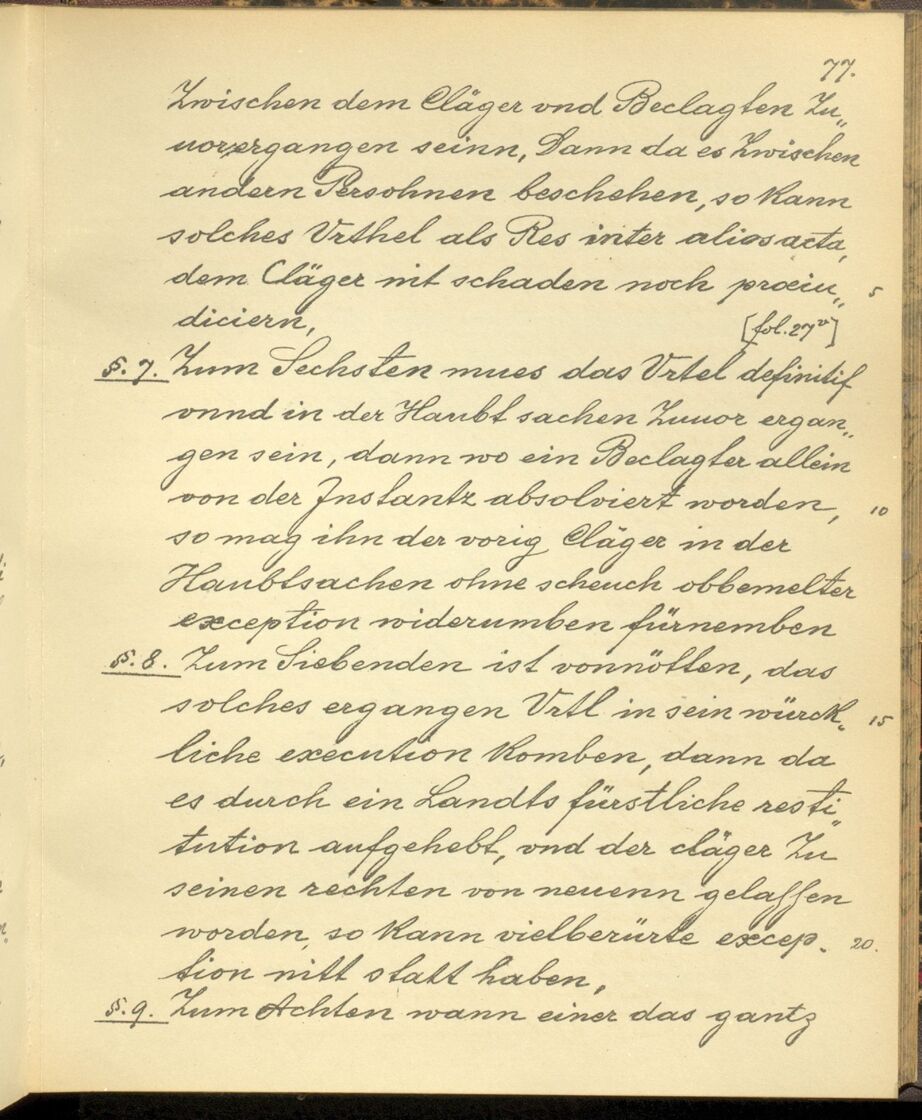 77.
Zwischen dem Cläger vnd Beclagten Zu„
uorergangen seinn, Dann da es Zwischen
andern Persohnen beschehen, so kann
solches Vrthel als Res inter alios acta,
dem Cläger nit schaden noch præiu„ 5
diciern,
[fol. 27v]
§. 7. Zum Sechsten mues das Vrtel definitif
vnnd in der Haubt sachen Zuuor ergan„
gen sein, dann wo ein Beclagter allein
von der Instantz absolviert worden, 10
so mag ihn der vorig Cläger in der
Haubtsachen ohne scheuch obbemelter
exception widerumben fürnemben
§. 8. Zum Siebenden ist vonnötten, das
solches ergangen Vrtl in sein würck„ 15
liche execution komben, dann da
es durch ein Landts fürstliche resti„
tution aufgehebt, vnd der cläger Zu
seinen rechten von neuenn gelassen
worden, so kann vielberürte excep„ 20.
tion nitt statt haben,
§. 9. Zum Achten wann einer das gantz